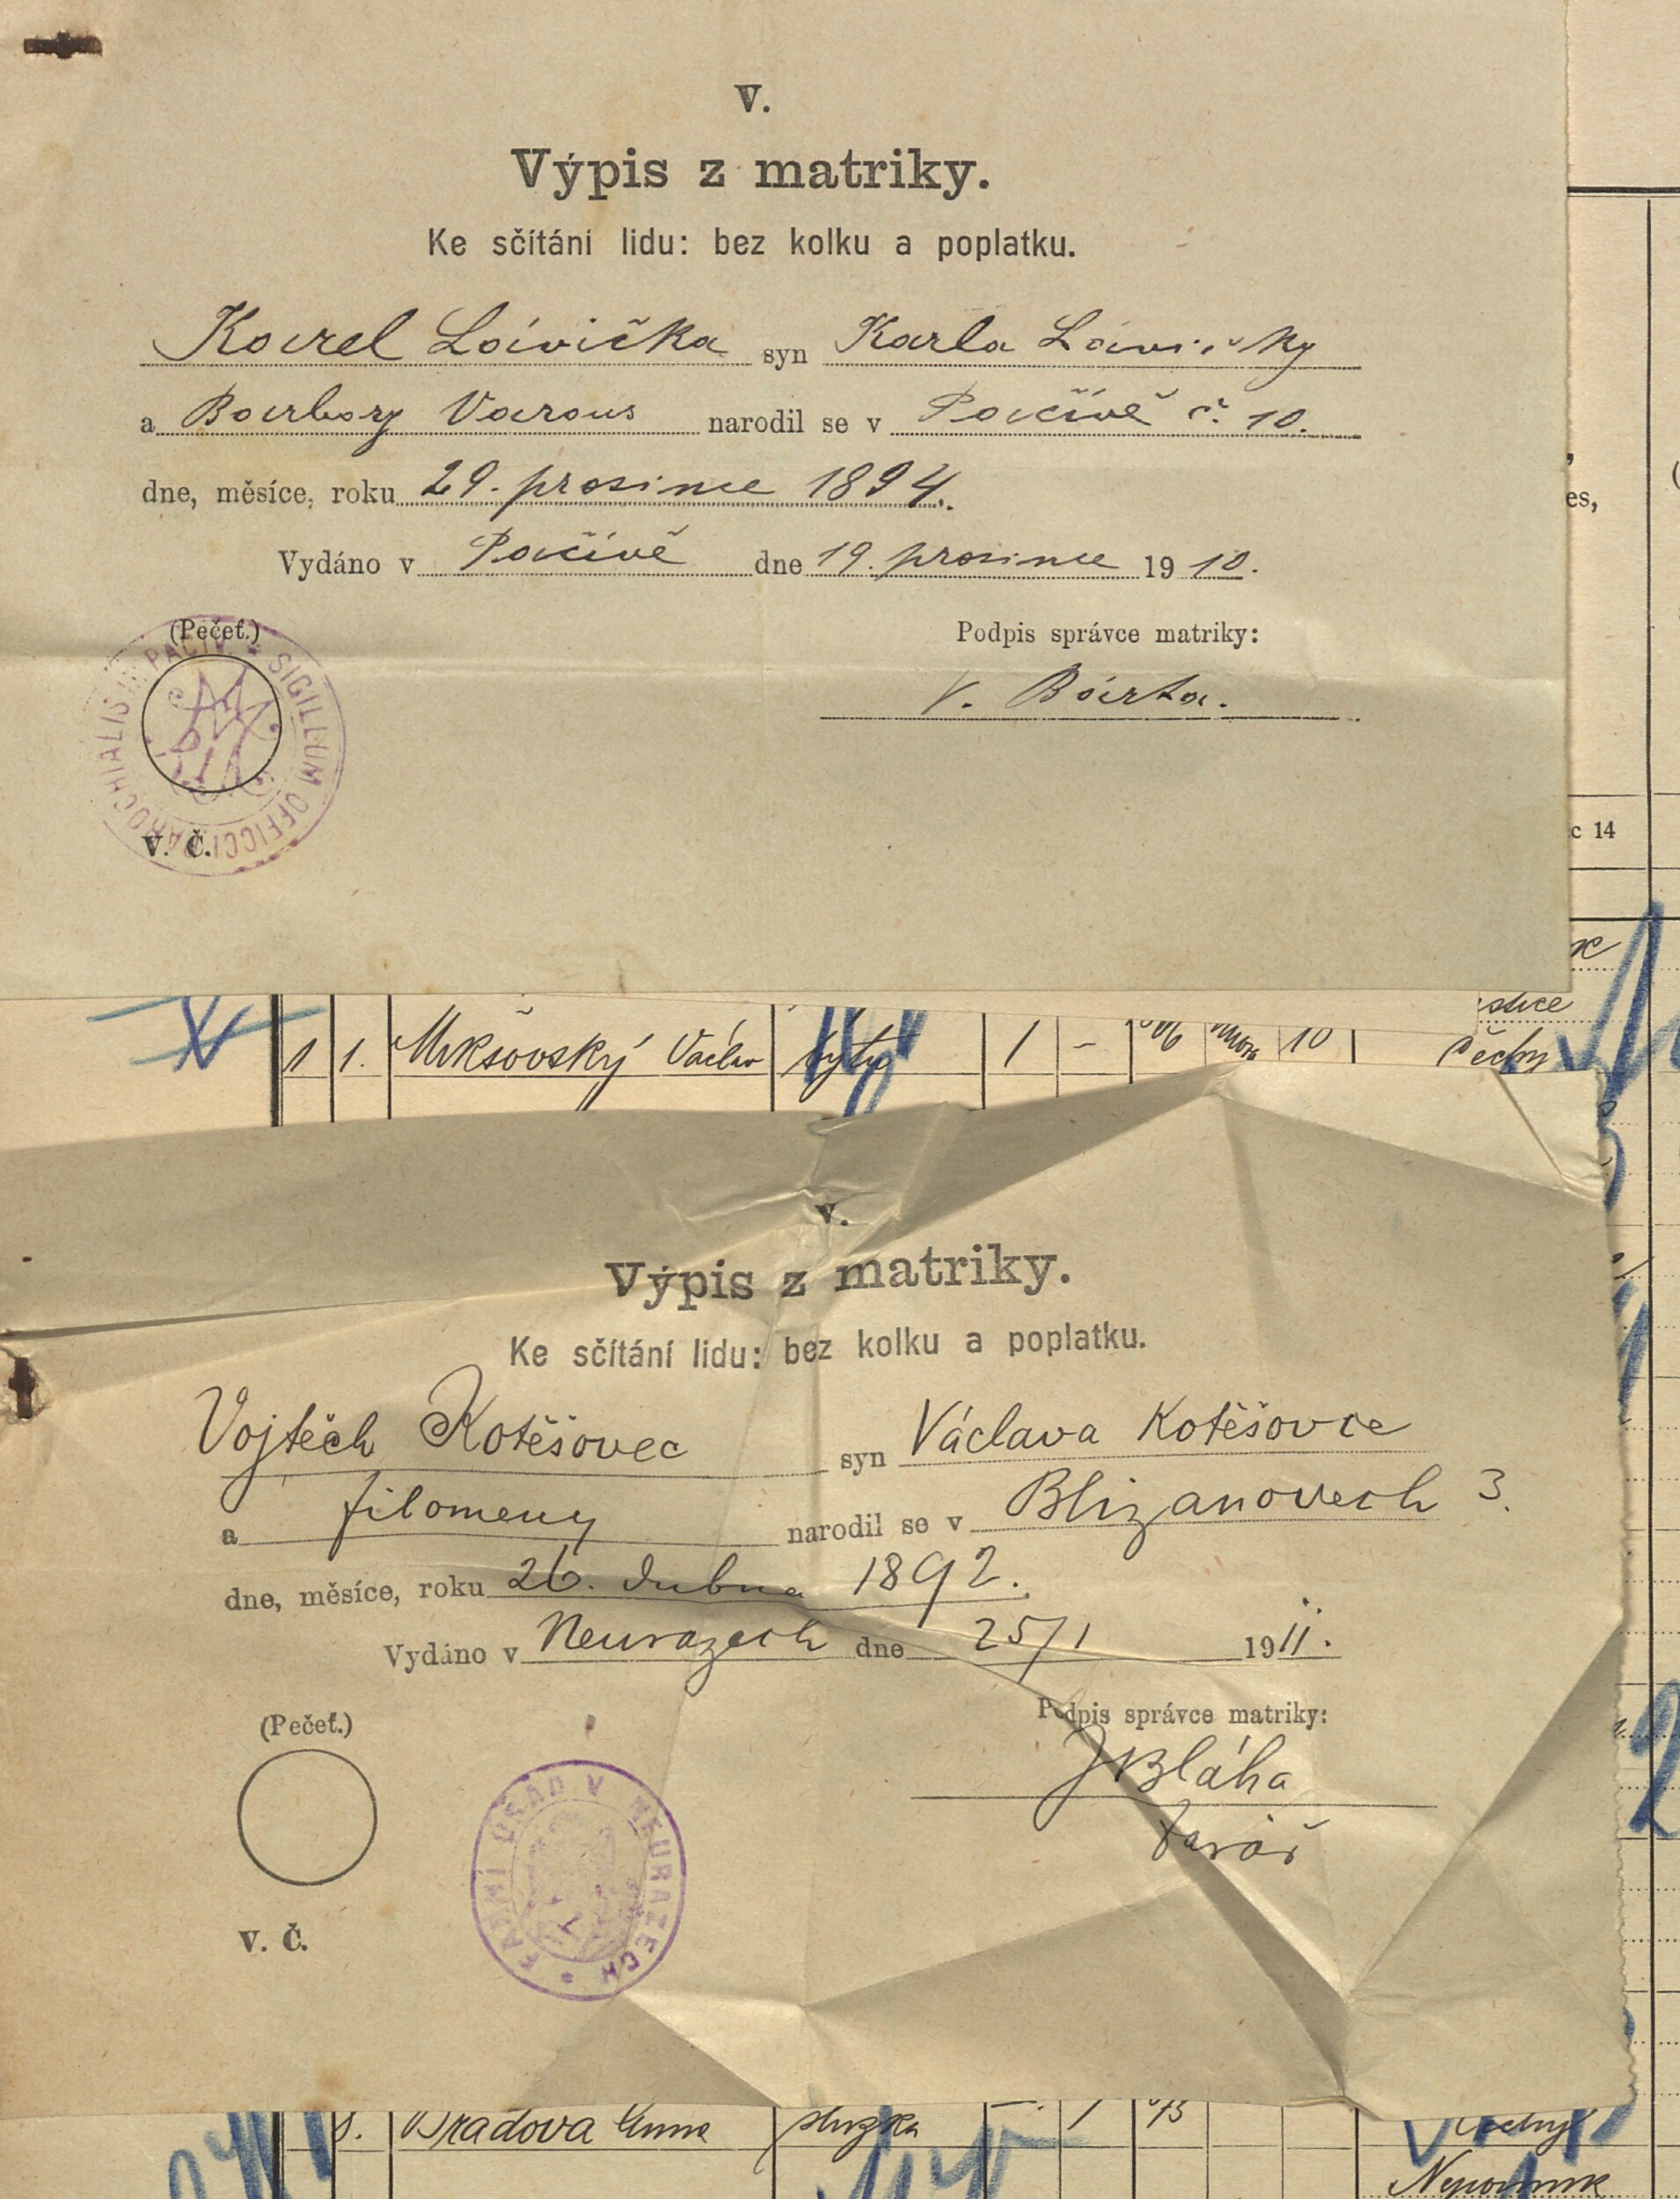 V.
Výpis z matriky.
Ke sčítání lidu: bez kolku a poplatku.
Karel Lávička syn Karla Lávičky
a Barbory Varous narodil se v Pačívě č. 10.
dne, měsíce, roku 29. prosince 1894.
Vydáno v Pačívě dne 19. prosince 1910.
(Pečeť.)
Podpis správce matriky:
V. Bárta.
SIGILLUM OFFICCI PAROCHIALIS PACIV
V. Č.
es,
c 14
1 1. Mikšovský Václav 1 - 10 Čechy
V.
Výpis z matriky.
Ke sčítání lidu: bez kolku a poplatku.
Vojtěch Kotěšovec syn Václava Kotěšovce
a Filomeny narodil se v Blizanovech 3.
dne, měsíce, roku 26. dubna 1892.
Vydáno v Neurazech dne 25/1 1911.
(Pečeť.)
Podpis správce matriky:
J Bláha
farář
FARNÍ ÚŘAD V NEURAZECH
V. Č.
8. Bradova Anna služka 1 Čechy
Nepomuk